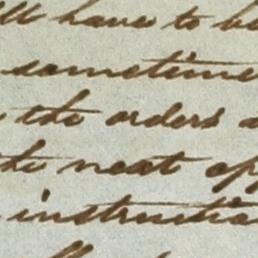 have to be
sometime
the orders
the neat
instructio